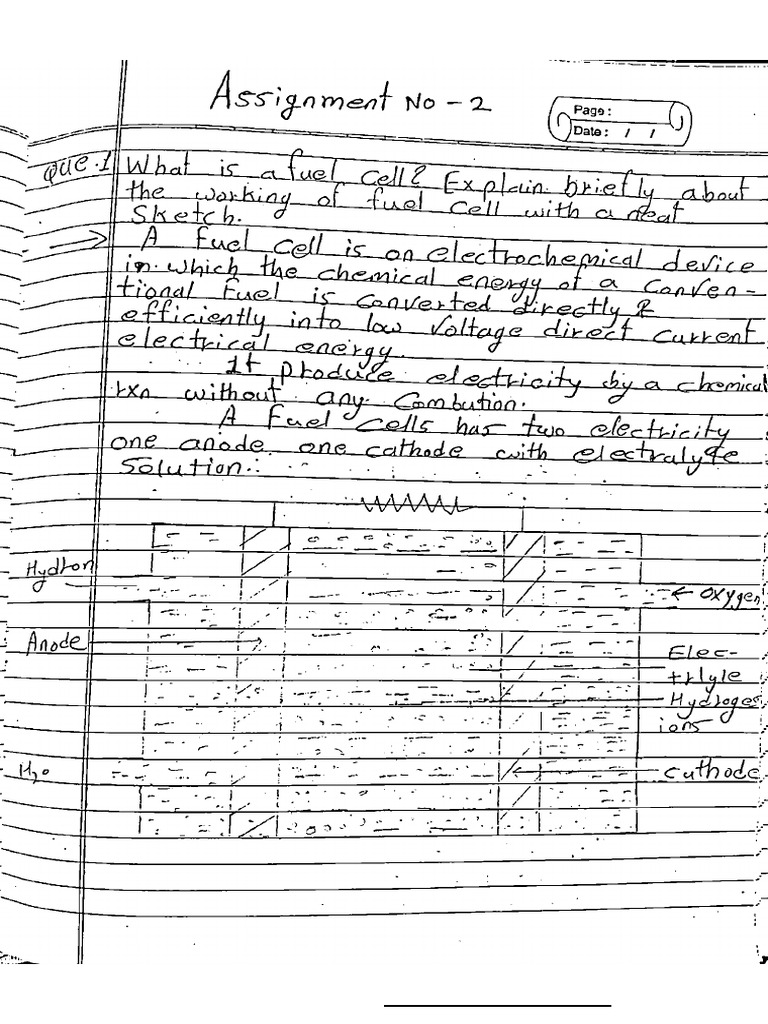 Assignment No - 2
Page :
Date : / /
Que.1 What is a fuel cell? Explain briefly about
the working of fuel cell with a neat
Sketch.
A fuel cell is an electrochemical device
in which the chemical energy of a Conven-
tional Fuel is converted directly &
efficiently into low voltage direct current
electrical energy.
It produce electricity by a chemical
rxn without any Combution.
A fuel cells has two electricity
one anode one cathode with electralyte
Solution.
Hydron
← Oxygen
Anode
Elec-
trlyle
Hydroges
ions
H2o
Cuthode